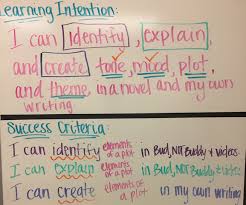 Learning Intention:
I can identify, explain,
and create tone, mood, plot,
and theme, in a novel and my own
writing.
Success Criteria:
I can identify elements of a plot in Bud, Not Buddy + videos.
I can explain elements of a plot in Bud, Not Buddy + videos
I can create elements of a plot in my own writing